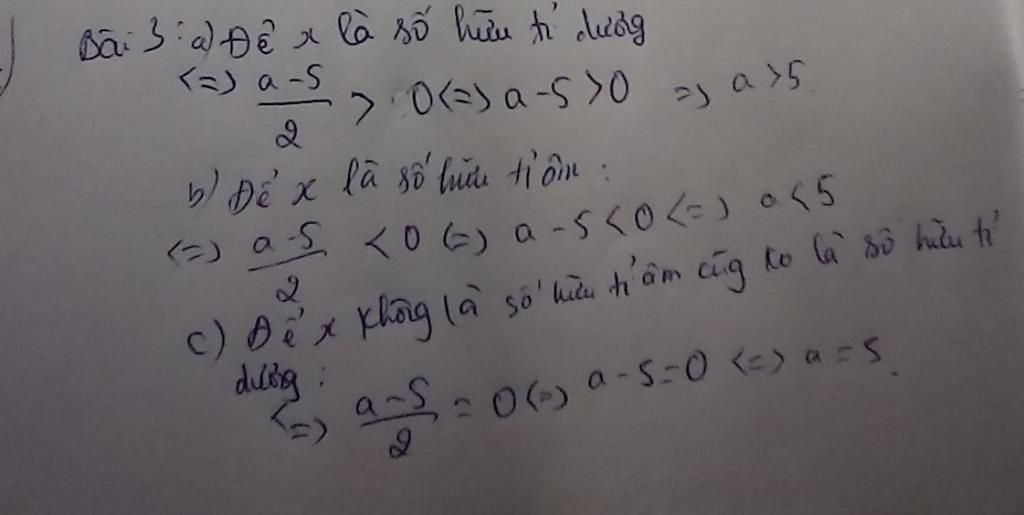 Bài 3: a) Để x là số hữu tỉ dương
<=> a-5/2 > 0 <=> a-5>0 => a>5
b) Để x là số hữu tỉ âm:
<=> a-5/2 <0 <=> a-5<0 <=> a<5
c) Để x không là số hữu tỉ âm cũg ko là số hữu tỉ
dương:
<=> a-5/2 = 0 <=> a-5=0 <=> a=5.